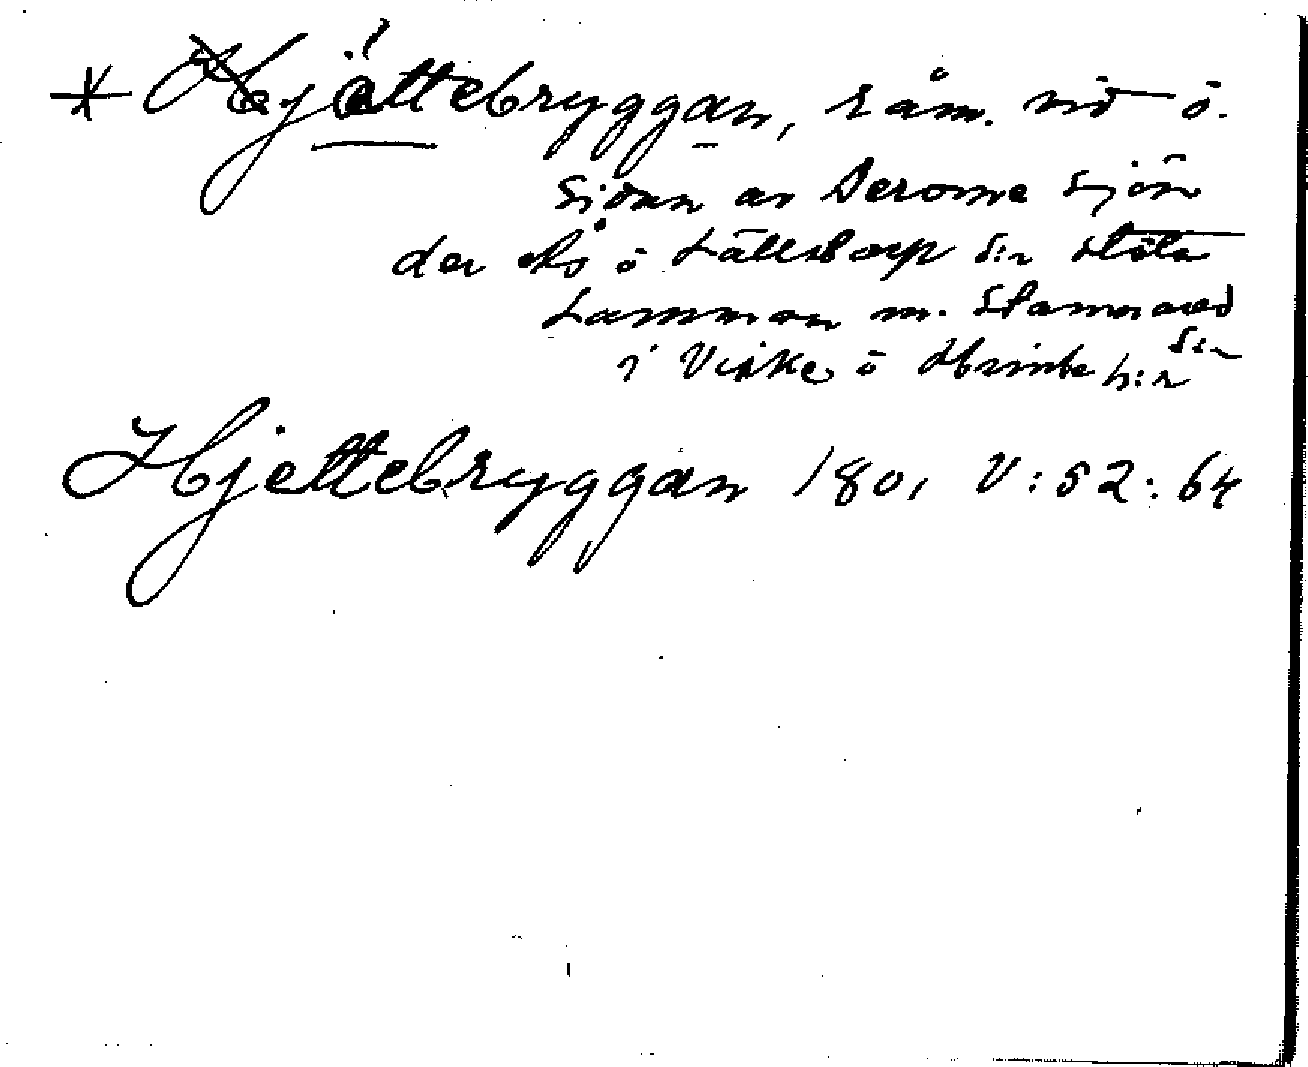 * Hjättebryggan, råm. vid ö.
sidan av Derome sjön
där Ås o Lällstorp s:r stöta
samman m. Stamnared s:r
i Viske o Himle h:r
Hjettebryggan 1801 V:52:64